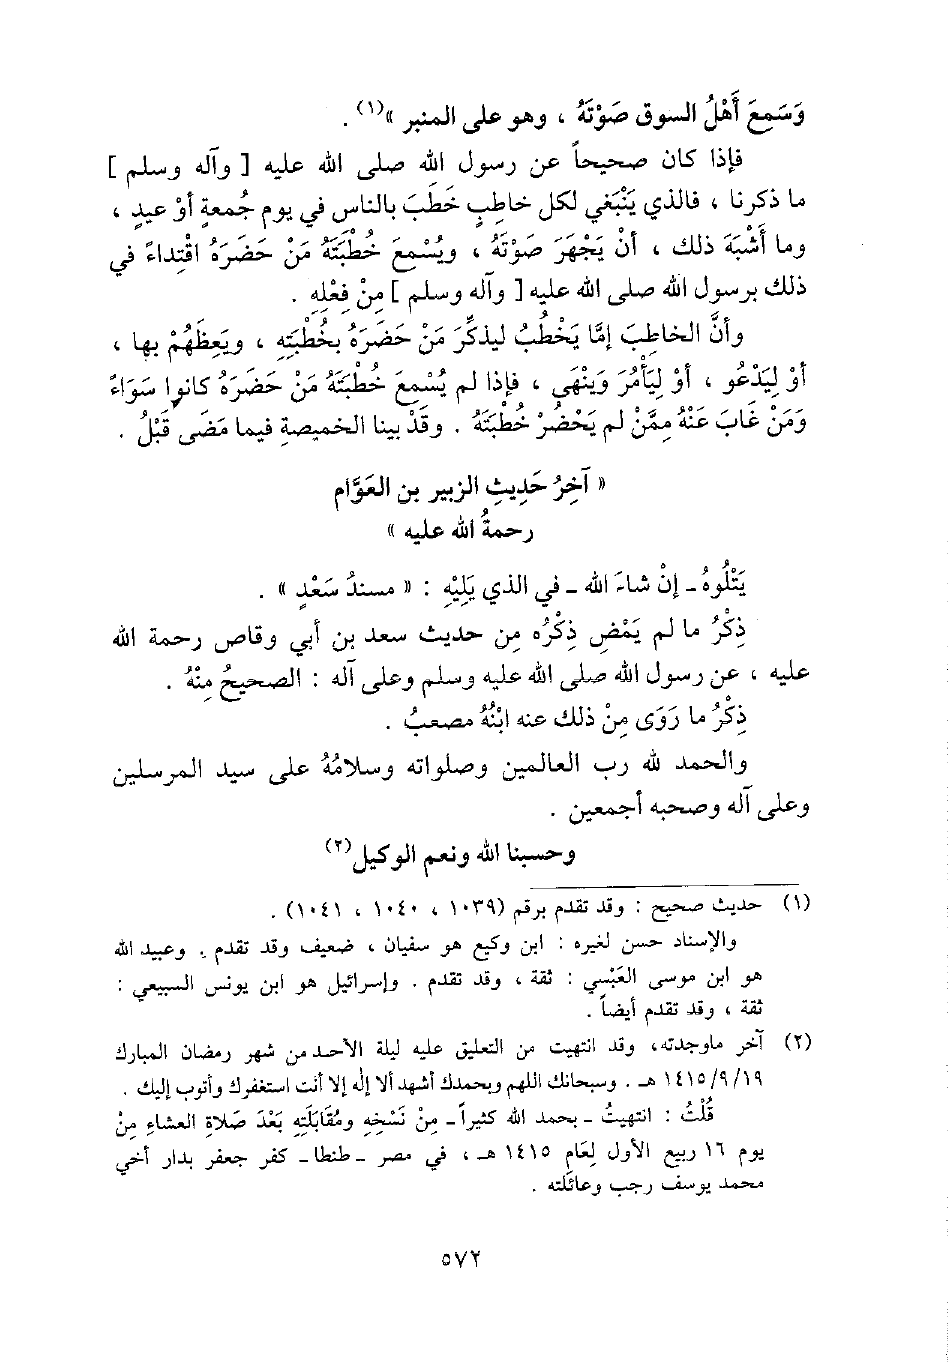 وَسَمِعَ أَهْلُ السوق صَوْتَهُ ، وهو على المنبر »(١) .
فإذا كان صحيحاً عن رسول الله صلى الله عليه [ وآله وسلم ]
ما ذكرنا ، فالذي يَنْبَغي لكل خاطِبٍ خَطَبَ بالناس في يوم جُمعةٍ أوْ عيدٍ ،
وما أَشْبَهَ ذلك ، أنْ يَجْهَرَ صَوْتَهُ ، ويُسْمِعَ خُطْبَتَهُ مَنْ حَضَرَهُ اقْتِداءً في
ذلك برسول الله صلى الله عليه [ وآله وسلم ] مِنْ فِعْلِهِ .
وأنَّ الخاطِبَ إمَّا يَخْطُبُ ليذكِّرَ مَنْ حَضَرَهُ بخُطْبَتِهِ ، ويَعِظَهُمْ بها ،
أوْ لِيَدْعُو ، أوْ لِيَأْمُرَ وَينْهَى ، فإذا لم يُسْمِعَ خُطْبَتَهُ مَنْ حَضَرَهُ كانوا سَوَاءً
وَمَنْ غَابَ عَنْهُ مِمَّنْ لم يَحْضُرْ خُطْبَتَهُ . وقَدْ بينا الخميصةِ فيما مَضَى قَبْلُ .
« آخِرُ حَدِيثِ الزبير بن العَوَّام
رحمةُ الله عليه »
يَتْلُوهُ ـ إنْ شاءَ الله ـ في الذي يَلِيْهِ : « مسندُ سَعْدٍ » .
ذِكْرُ ما لم يَمْضِ ذِكْرُه من حديث سعد بن أبي وقاص رحمة الله
عليه ، عن رسول الله صلى الله عليه وسلم وعلى آله : الصحيحُ مِنْهُ .
ذِكْرُ ما رَوَى مِنْ ذلك عنه ابْنُهُ مصعبُ .
والحمد لله رب العالمين وصلواته وسلامُهُ على سيد المرسلين
وعلى آله وصحبه أجمعين .
وحسبنا الله ونعم الوكيل(٢)
(١) حديث صحيح : وقد تقدم برقم (١٠٣٩ ، ١٠٤٠ ، ١٠٤١) .
والإسناد حسن لغيره : ابن وكيع هو سفيان ، ضعيف وقد تقدم . وعبيد الله
هو ابن موسى العَبْسي : ثقة ، وقد تقدم . وإسرائيل هو ابن يونس السبيعي :
ثقة ، وقد تقدم أيضاً .
(٢) آخر ماوجدته، وقد انتهيت من التعليق عليه ليلة الأحد من شهر رمضان المبارك
١٤١٥/٩/١٩ هـ . وسبحانك اللهم وبحمدك أشهد ألا إله إلا أنت استغفرك وأتوب إليك .
قُلْتُ : انتهيتُ ـ بحمد الله كثيراً ـ مِنْ نَسْخِهِ ومُقابَلَتِهِ بَعْدَ صَلاةِ العشاءِ مِنْ
يوم ١٦ ربيع الأول لِعَامِ ١٤١٥ هـ ، في مصر ـ طنطا ـ كفر جعفر بدار أخي
محمد يوسف رجب وعائلته .
٥٧٢